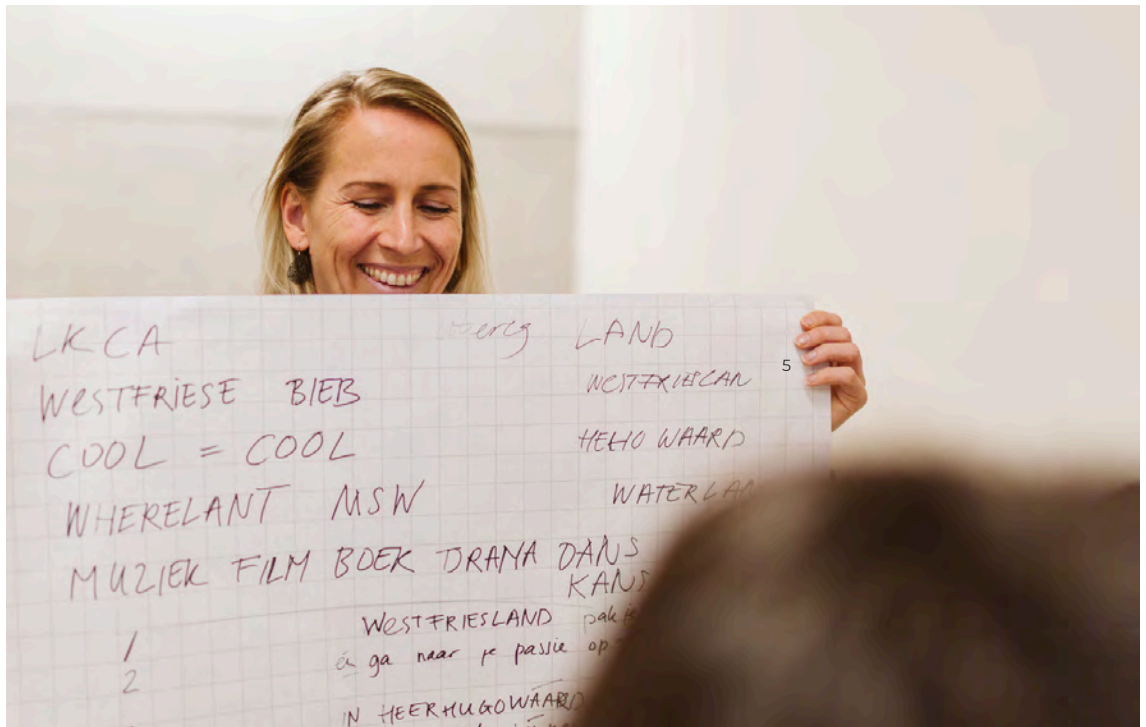 LKCA LAND
5
WESTFRIESE BIEB WESTFRIESLAN
COOL = COOL HEHO WAARD
WHERELANT MSW WATERLAN
MUZIEK FILM BOEK DRAMA DANS
KANS
1 WESTFRIESLAND pak
2 én ga naar je passie op
IN HEERHUGOWAARD